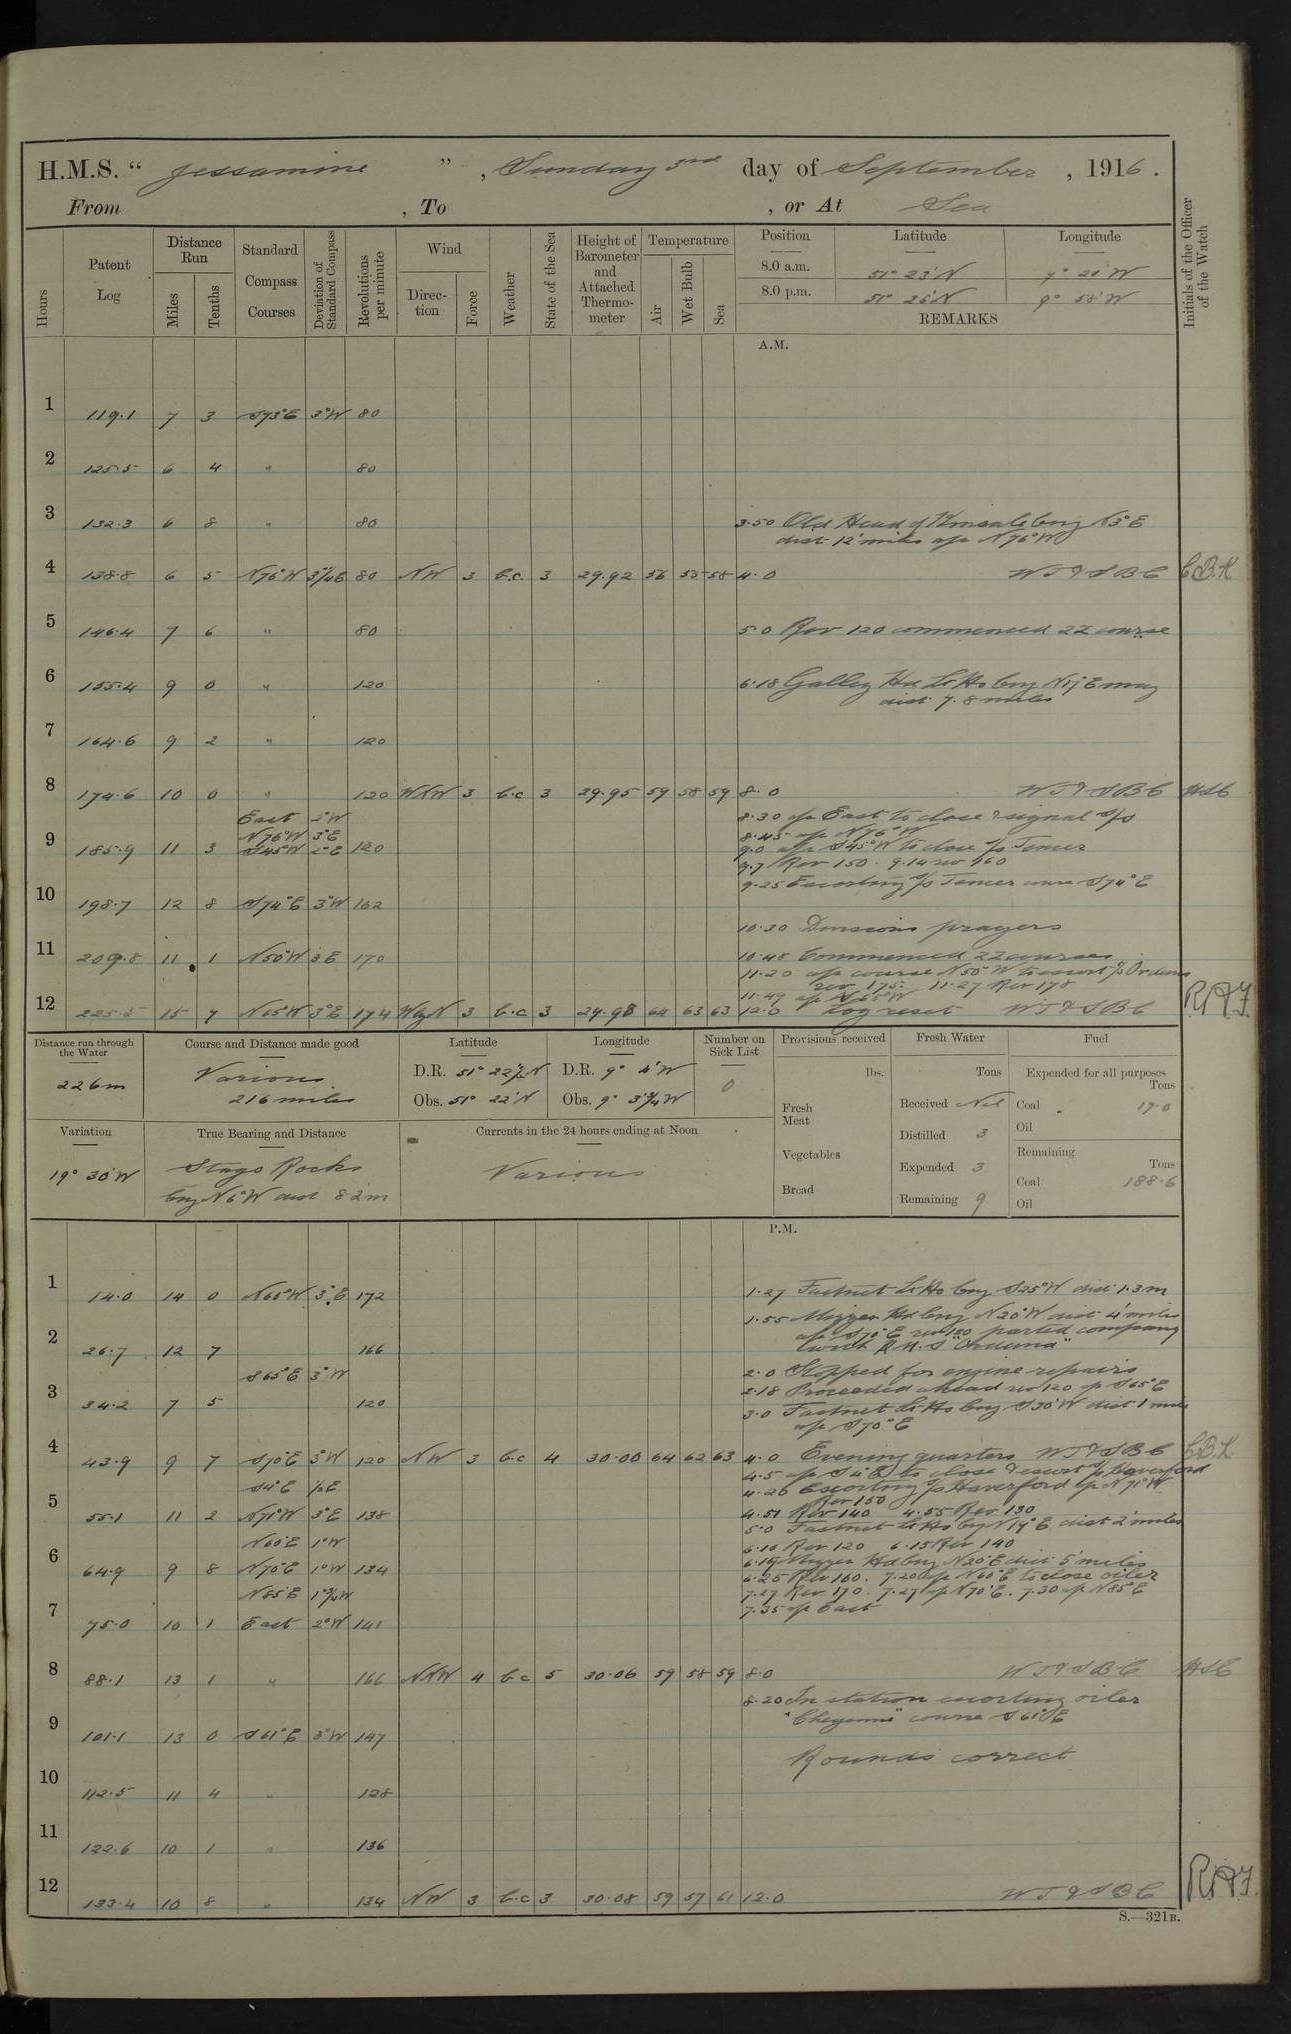 H.M.S. “ Jessamine ” , Sunday 3rd day of September , 1916 .
From , To , or At Sea
Hours
Patent Log
Distance Run
Miles
Tenths
Standard Compass Courses
Deviation of Standard Compass
Revolutions per minute
Wind
Direction
Force
Weather
State of the Sea
Height of Barometer and Attached Thermometer
Temperature
Air
Wet Bulb
Sea
Position Latitude Longitude
8.0 a.m. 51° 23'N 9° 20'W
8.0 p.m. 51° 25'N 9° 58'W
REMARKS
Initials of the Officer of the Watch
A.M.
1 119.1 7 3 S73°E 3°W 80
2 125.5 6 4 " 80
3 132.3 6 8 " 80
3.50 Old Head of Kinsale brg N3°E
dist 12' miles a/c N76°W
4 138.8 6 5 N76°W 80 NW 3 b.c. 3 29.92 56 55 58 4.0 WT&SBC C.B.K
5 146.4 7 6 " 80 5.0 Rev 120 commenced ZZ course
6 155.4 9 0 " 120 6.18 Galley Hd Lt Ho brg
dist 7.8 miles
7 164.6 9 2 " 120
8 174.6 10 0 " 120 WNW 3 b.c 3 29.95 59 58 59 8.0 WT&SBC
East 3°W 8.30 a/c East to close & signal S/S
N76°W 3°E 8.45 a/c N76°W
9 185.9 11 3 S45°W 2°E 120 9.0 a/c S45°W to close S/S
9.7 Rev 150. 9.14 rev 160
9.25 Escorting S/S course S74°E
10 198.7 12 8 S74°E 3°W 162
10.30 Divisions prayers
10.45 Commenced ZZ courses
11 209.8 11 1 N50°W 3E 170
11.20 a/c course N50°W to escort S/S Orduna
rev 175. 11.27 Rev 178
11.49 a/c N65°W
12 225.5 15 7 N65°W 3°E 174 WbyN 3 b.c 3 29.98 64 63 63 12.0 Log reset WT&SBC
Distance run through the Water
226m
Course and Distance made good
Various
216 miles
Latitude
D.R. 51° 22½'N
Obs. 51° 22'N
Longitude
D.R. 9° 4'W
Obs. 9° 3¼'W
Number on Sick List
0
Provisions received
lbs.
Fresh Meat
Vegetables
Bread
Fresh Water
Tons
Received Nil
Distilled 3
Expended 3
Remaining 9
Fuel
Expended for all purposes
Tons
Coal 19.0
Oil
Remaining
Tons
Coal 188.6
Oil
Variation
19° 30'W
True Bearing and Distance
Stags Rocks
brg N6°W dist 8.2'm
Currents in the 24 hours ending at Noon
Various
P.M.
1 14.0 14 0 N65°W 3°E 172
1.27 Fastnet Lt Ho brg S25°W dist 1.3m
1.55 Mizzen Hd brg N20°W dist 4' miles
a/c S70°E rev 120 parted company
with "Orduna"
2 26.7 12 7 166
S65°E 3°W 2.0 Stopped for engine repairs
2.18 Proceeded ahead rev 120 S65°E
3 34.2 7 5 120
3.0 Fastnet Lt Ho brg S30°W dist 1 mile
a/c S70°E
4 43.9 9 7 S70°E 3°W 120 NW 3 b.c 4 30.00 64 62 63 4.0 Evening quarters WT&SBC C.B.K
S4°E ½E 4.5 a/c S4°E to close & escort S/S Haverford
4.26 Escorting S/S Haverford a/c N71°W
Rev 150
5 55.1 11 2 N71°W 3°E 138 4.51 Rev 140 4.55 Rev 130
5.0 Fastnet Lt Ho brg N14°E dist 2' miles
N60°E 1°W 6.10 Rev 120 6.15 Rev 140
6 64.9 9 8 N70°E 1°W 134 6.19 Mizzen Hd brg N20°E dist 5' miles
6.25 Rev 160. 7.20 a/c N60°E to close oiler
N85°E 7.27 Rev 170. 7.27 a/c N70°E. 7.30 a/c N85°E
7.35 a/c East
7 75.0 10 1 East 2°W 141
8 88.1 13 1 " 166 NNW 4 b.c 5 30.06 59 58 59 8.0 WT&SBC
8.20 In station escorting oiler
"Cheyenne" course S61°E
9 101.1 13 0 S61°E 3°W 147
Rounds correct
10 112.5 11 4 " 128
11 122.6 10 1 " 136
12 133.4 10 8 " 134 NW 3 b.c 3 30.08 59 57 61 12.0 WT&SBC
S.—321B.